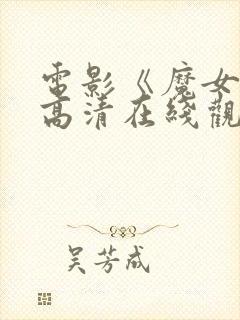 電影《魔女
高清在綫觀
吴芳成